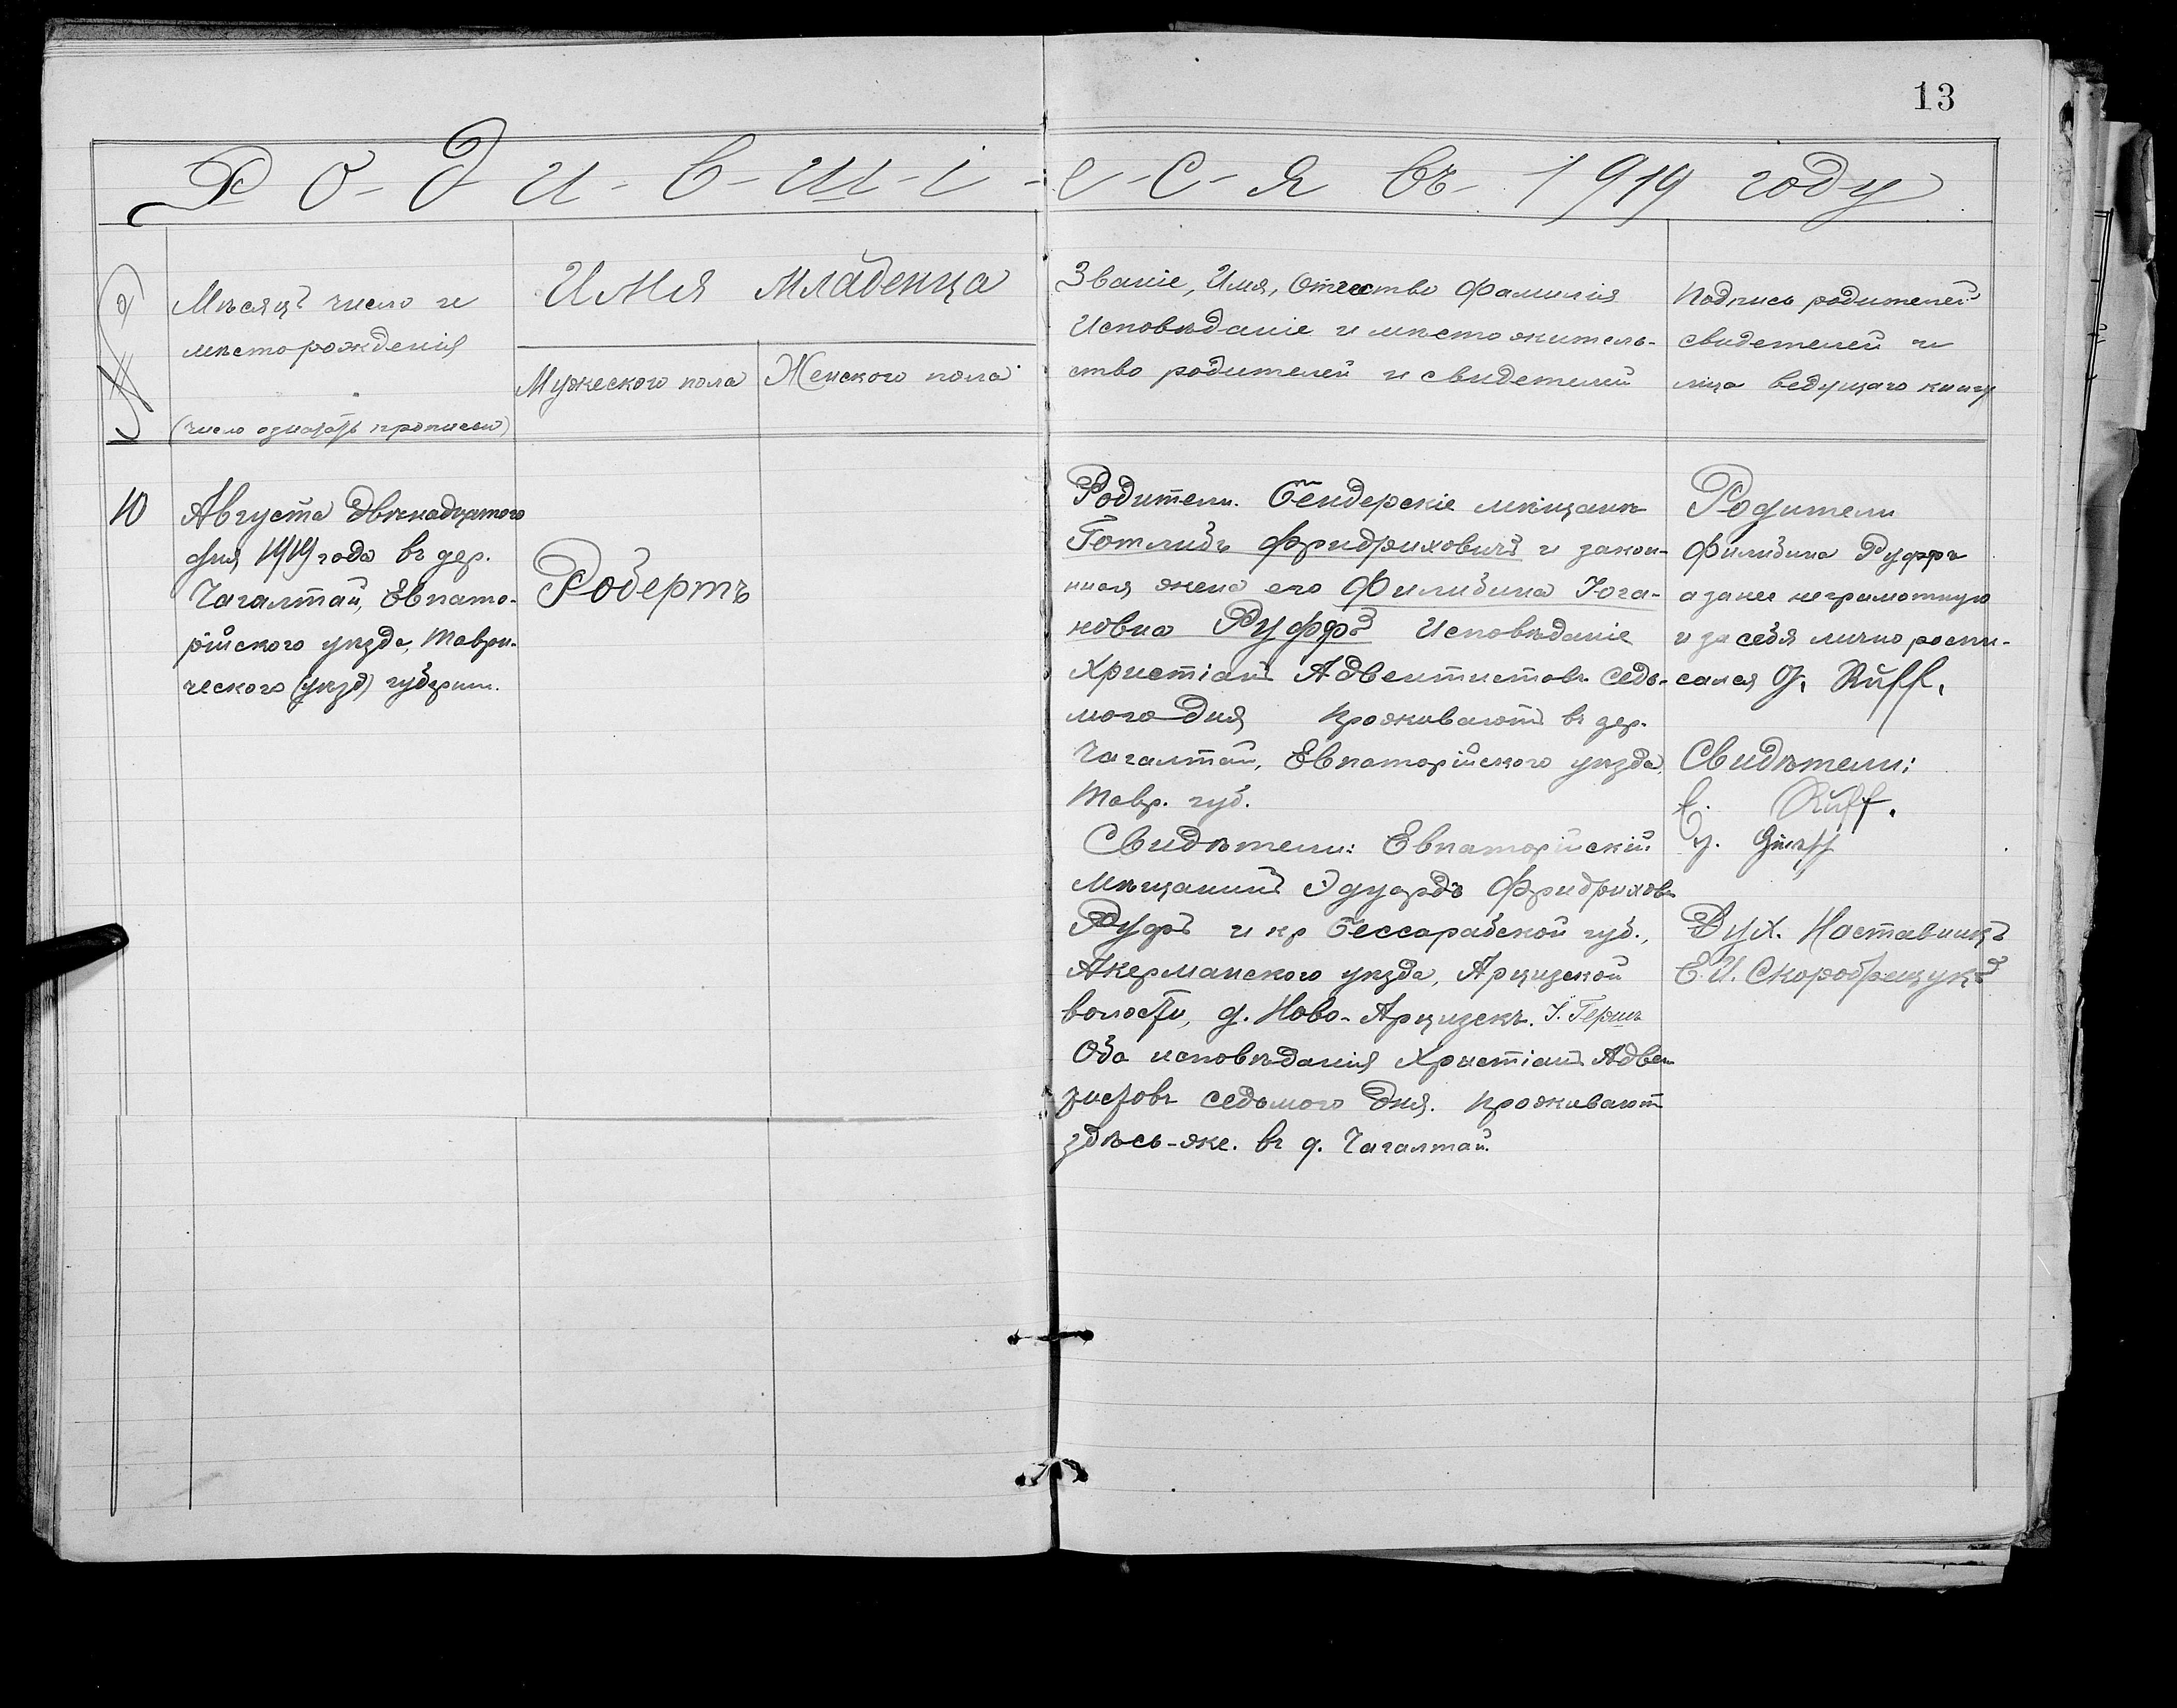 13
Р-о-д-и-в-ш-і-е-с-я въ 1919 году
№
Мѣсяцъ число и
мѣсто рожденія
(число означать прописью)
Имя младенца
Мужеского пола
Женского пола
Званіе, Имя, Отчество Фамилія
Исповѣданіе и мѣсто житель-
ство родителей и свидетелей
Подпись родителей
свидетелей и
лица ведущаго книгу
10
Августа двѣнадцатого
дня 1919 года въ дер.
Чагалтай, Евпато-
рійского уѣзда, Таври-
ческого (уѣзд) губерніи.
Робертъ
Родители. Бендерскіе мѣщане
Готлибъ Фридриховичъ и закон-
ная жена его Филибина Іога-
новна Руффъ Исповѣданіе
Христіанъ Адвентистовъ седь-
мого дня проживаютъ въ дер.
Чагалтай, Евпаторійского уѣзда,
Тавр. губ.
Свидѣтели: Евпаторійскій
мѣщанинъ Эдуардъ Фридрихов
Руфъ и кр Бессарабской губ.,
Акерманского уѣзда, Арцизской
волости, д. Ново-Арцизскъ. І. Геринъ
Оба исповѣданія Христіанъ Адвен
тистовъ седьмого дня. проживают
здѣсь-же. въ д. Чагалтай.
Родители
Филибина Руффъ
а за нее неграмотную
и за себя лично роспи-
сался G. Ruff.
Свидѣтели:
E. Ruff.
Дух. Наставникъ
Е. И. Скоробрещукъ